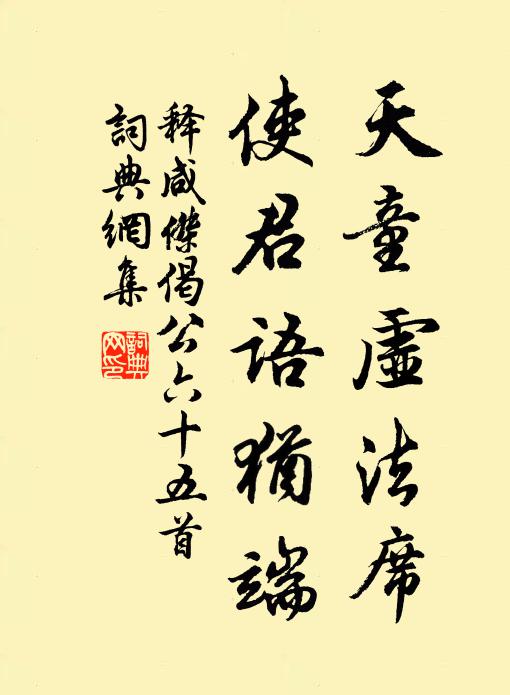 天童虛法席
使君語猶端
释咸傑偈公六十五首
詞典網集
詞典網印